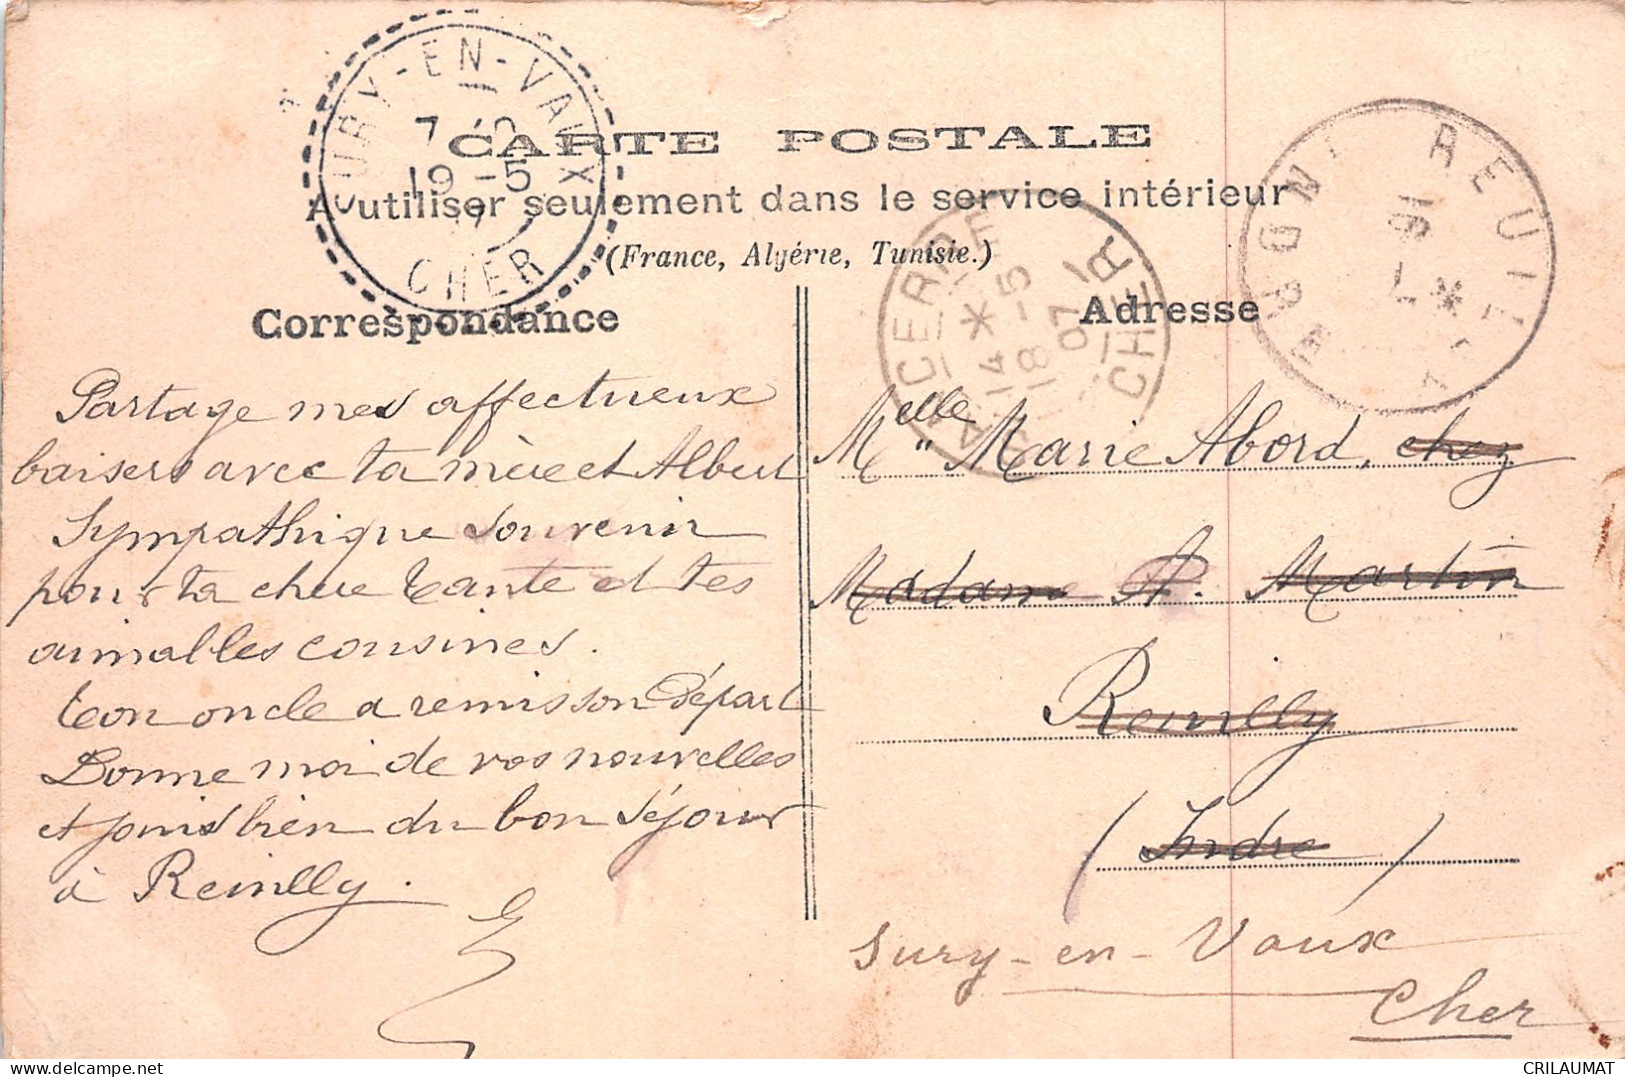 SURY-EN-VAUX
7
19-5
CHER
CARTE POSTALE
A utiliser seulement dans le service intérieur
(France, Algérie, Tunisie.)
Correspondance
Adresse
SANCERRE
14 *
18 -5
07
CHER
REUILLY
16
Partage mes affectueux
baisers avec ta mère et Albert
Sympathique souvenir
pour ta chere tante et tes
aimables cousines.
ton oncle a remis son départ
Donne moi de vos nouvelles
et jouis bien du bon séjour
à Reuilly.
Melle Marie Abord, chez
Madame A. Martin
Reuilly
(Indre)
Sury-en-Vaux
Cher
CRILAUMAT